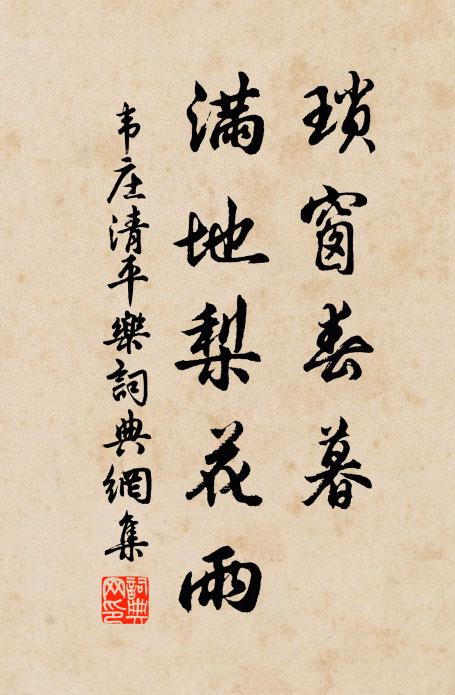 瑣窗春暮
滿地梨花雨
韦庄清平樂詞典網集
詞典
网印